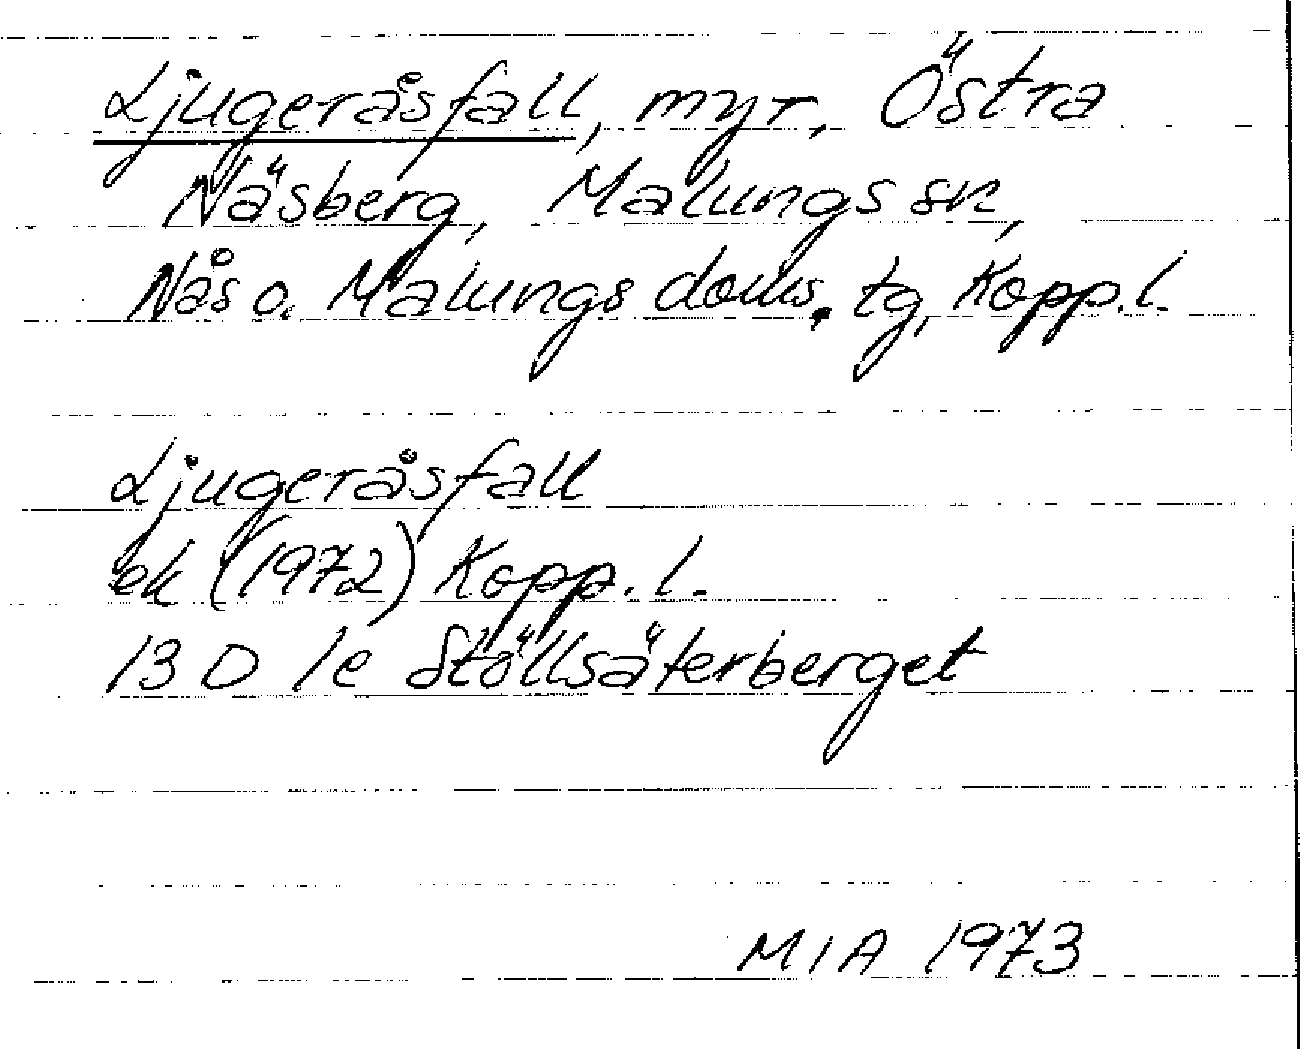 Ljugeråsfall, myr, Östra
Näsberg, Malungs sn,
Nås o. Malungs doms. tg, Kopp.l.
Ljugeråsfall
ek (1972) Kopp.l.
13 D 1e Stöllsäterberget
MIA 1973